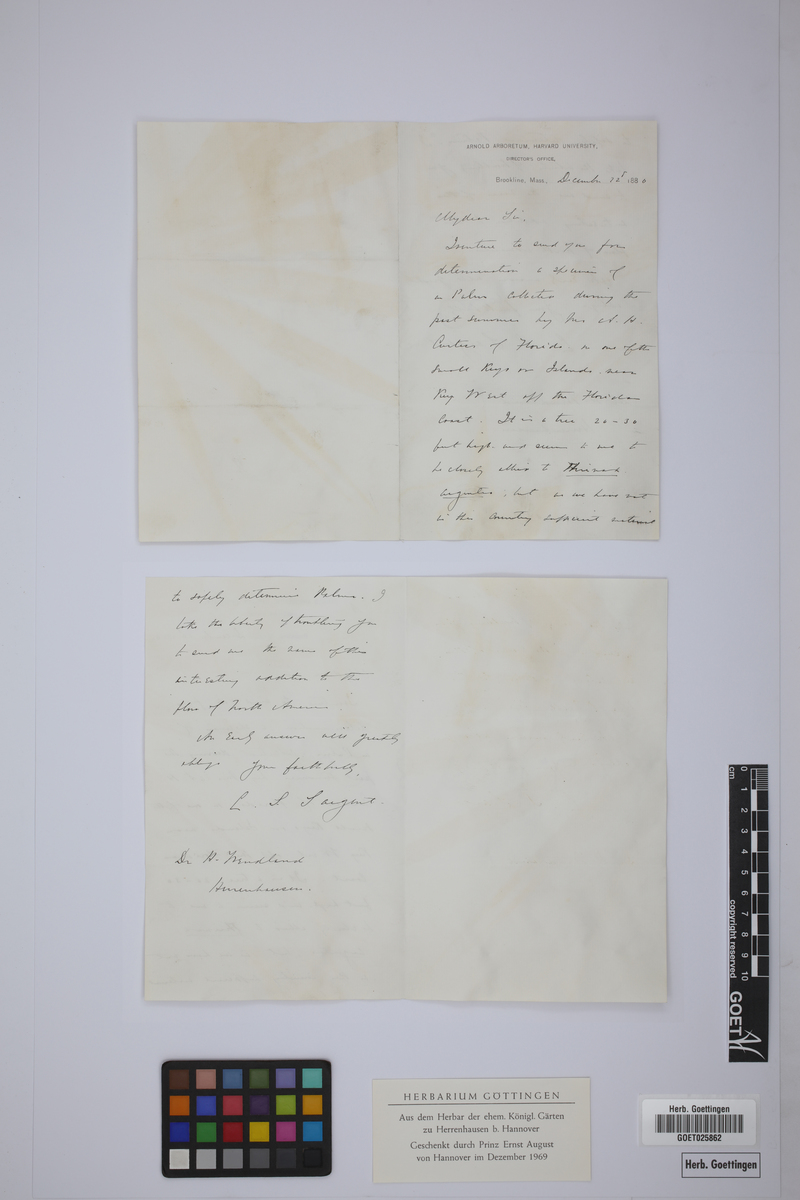 ARNOLD ARBORETUM, HARVARD UNIVERSITY,
DIRECTOR'S OFFICE,
Brookline, Mass., December 1880
My dear Sir,
I venture to send you for
determination a specimen of
a Palm collected during the
past summer by Mr A. H.
Curtiss of Florida on one of the
small Keys or Islands near
Key West off the Floridan
Coast. It is a tree 20-30
feet high and seems to me to
be closely allied to Thrinax
argentea, but as we have not
in this country sufficient material
to safely determine Palms, I
take the liberty of troubling you
to send me the name of this
interesting addition to the
flora of North America.
An early answer will greatly
oblige Yours faithfully,
C. S. Sargent.
Dr H. Wendland
Herrenhausen.
cm 0 1 2 3 4 5 6 7 8 9 10
copyright reserved
GOET
HERBARIUM GÖTTINGEN
Aus dem Herbar der ehem. Königl. Gärten
zu Herrenhausen b. Hannover
Geschenkt durch Prinz Ernst August
von Hannover im Dezember 1969
Herb. Goettingen
GOET025862
Herb. Goettingen